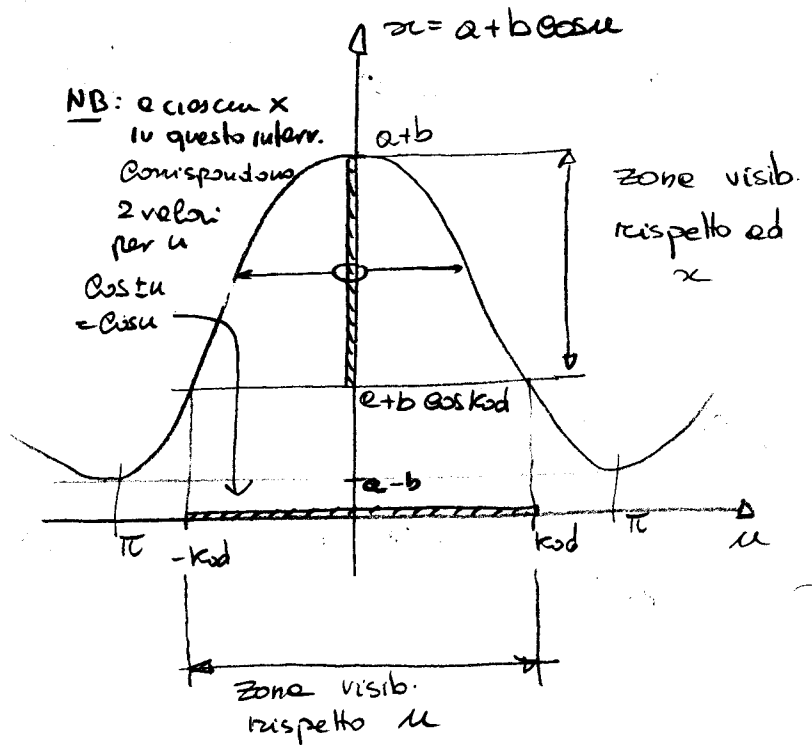 x = a + b cos u
NB: a ciascun x
in questo interv.
corrispondono
2 valori
per u
cos ± u
= cos u
a+b
zona visib.
rispetto ad
x
a+b cos kod
a-b
π
-kod
kod
π
u
zona visib.
rispetto u